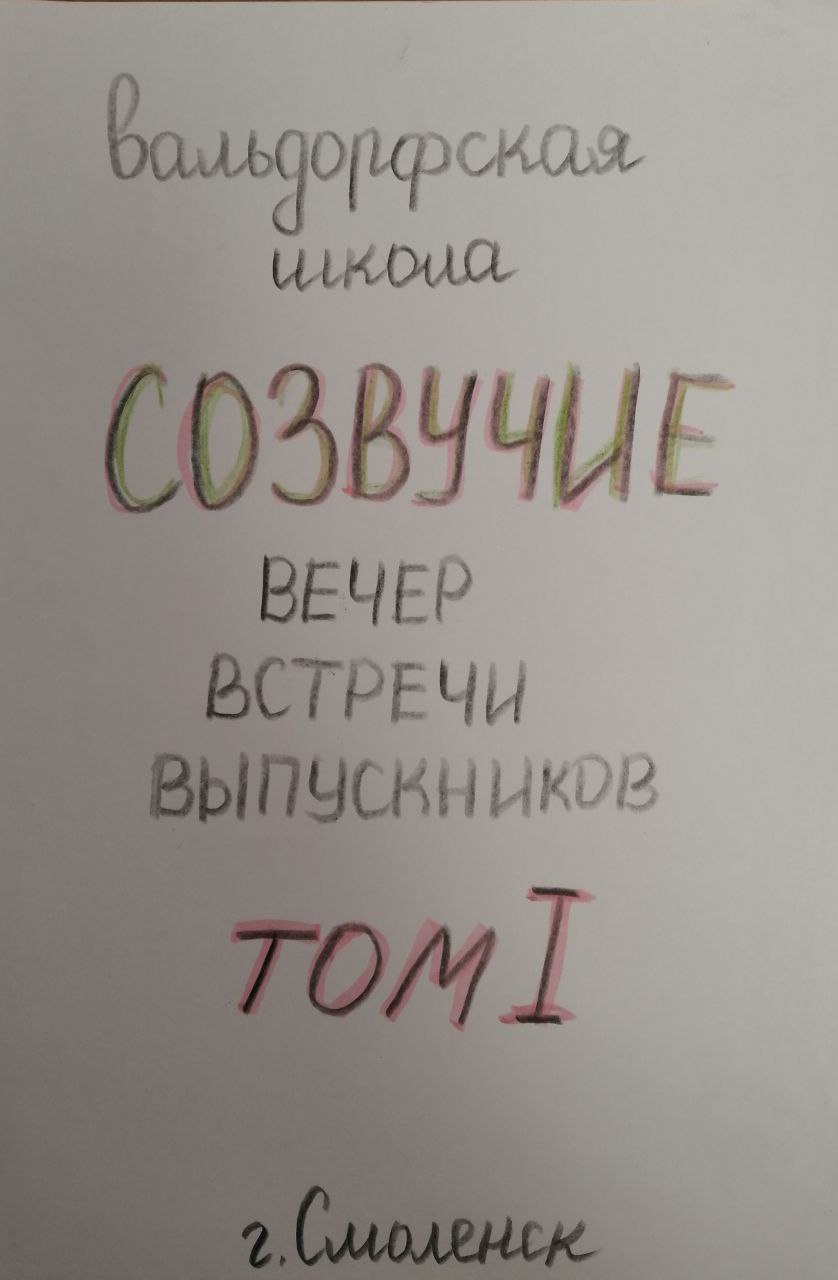 вальдорфская
школа
СОЗВУЧИЕ
ВЕЧЕР
ВСТРЕЧИ
ВЫПУСКНИКОВ
ТОМ I
г. Смоленск